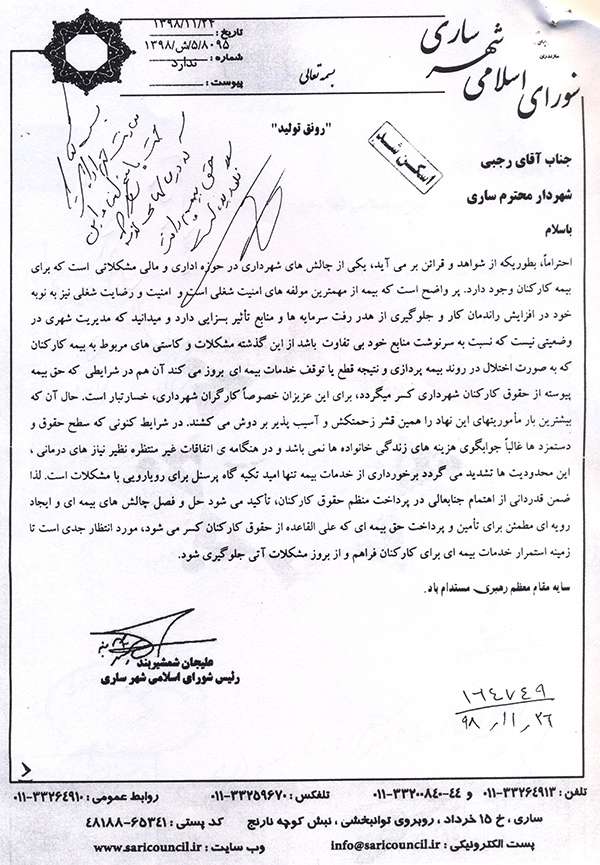 شورای اسلامی شهر ساری
بسمه تعالی
تاریخ : ۱۳۹۸/۱۱/۲۴
شماره : ۱۳۹۸/ش/۵/۸۰۹۵
پیوست : ندارد
"رونق تولید"
اسکن شد
جناب آقای رجبی
شهردار محترم ساری
باسلام
احتراماً، بطوریکه از شواهد و قرائن بر می آید، یکی از چالش های شهرداری در حوزه اداری و مالی مشکلاتی است که برای
بیمه کارکنان وجود دارد. پر واضح است که بیمه از مهمترین مولفه های امنیت شغلی است و امنیت و رضایت شغلی نیز به نوبه
خود در افزایش راندمان کار و جلوگیری از هدر رفت سرمایه ها و منابع تأثیر بسزایی دارد و میدانید که مدیریت شهری در
وضعیتی نیست که نسبت به سرنوشت منابع خود بی تفاوت باشد از این گذشته مشکلات و کاستی های مربوط به بیمه کارکنان
که به صورت اختلال در روند بیمه پردازی و نتیجه قطع یا توقف خدمات بیمه ای بروز می کند آن هم در شرایطی که حق بیمه
پیوسته از حقوق کارکنان شهرداری کسر میگردد، برای این عزیزان خصوصاً کارگران شهرداری، خسارتبار است. حال آن که
بیشترین بار مأموریتهای این نهاد را همین قشر زحمتکش و آسیب پذیر بر دوش می کشند. در شرایط کنونی که سطح حقوق و
دستمزد ها غالباً جوابگوی هزینه های زندگی خانواده ها نمی باشد و در هنگامه ی اتفاقات غیر منتظره نظیر نیاز های درمانی ،
این محدودیت ها تشدید می گردد برخورداری از خدمات بیمه تنها امید تکیه گاه پرسنل برای رویارویی با مشکلات است. لذا
ضمن قدردانی از اهتمام جنابعالی در پرداخت منظم حقوق کارکنان، تأکید می شود حل و فصل چالش های بیمه ای و ایجاد
رویه ای مطمئن برای تأمین و پرداخت حق بیمه ای که علی القاعده از حقوق کارکنان کسر می شود، مورد انتظار جدی است تا
زمینه استمرار خدمات بیمه ای برای کارکنان فراهم و از بروز مشکلات آتی جلوگیری شود.
سایه مقام معظم رهبری مستدام باد.
علیجان شمشیربند
رئیس شورای اسلامی شهر ساری
۱۶۴۷۴۹
۹۸/۱۱/۲۶
تلفن : ۳۳۲۶۴۹۱۳-۰۱۱ و ۴۴-۳۳۲۰۰۸۴۰-۰۱۱ تلفکس : ۳۳۲۵۹۶۷۰-۰۱۱ روابط عمومی : ۳۳۲۶۴۹۱۰-۰۱۱
ساری ، خ ۱۵ خرداد ، روبروی توانبخشی ، نبش کوچه نارنج کد پستی : ۶۵۳۴۱-۴۸۱۸۸
پست الکترونیکی : info@saricouncil.ir وب سایت : www.saricouncil.ir